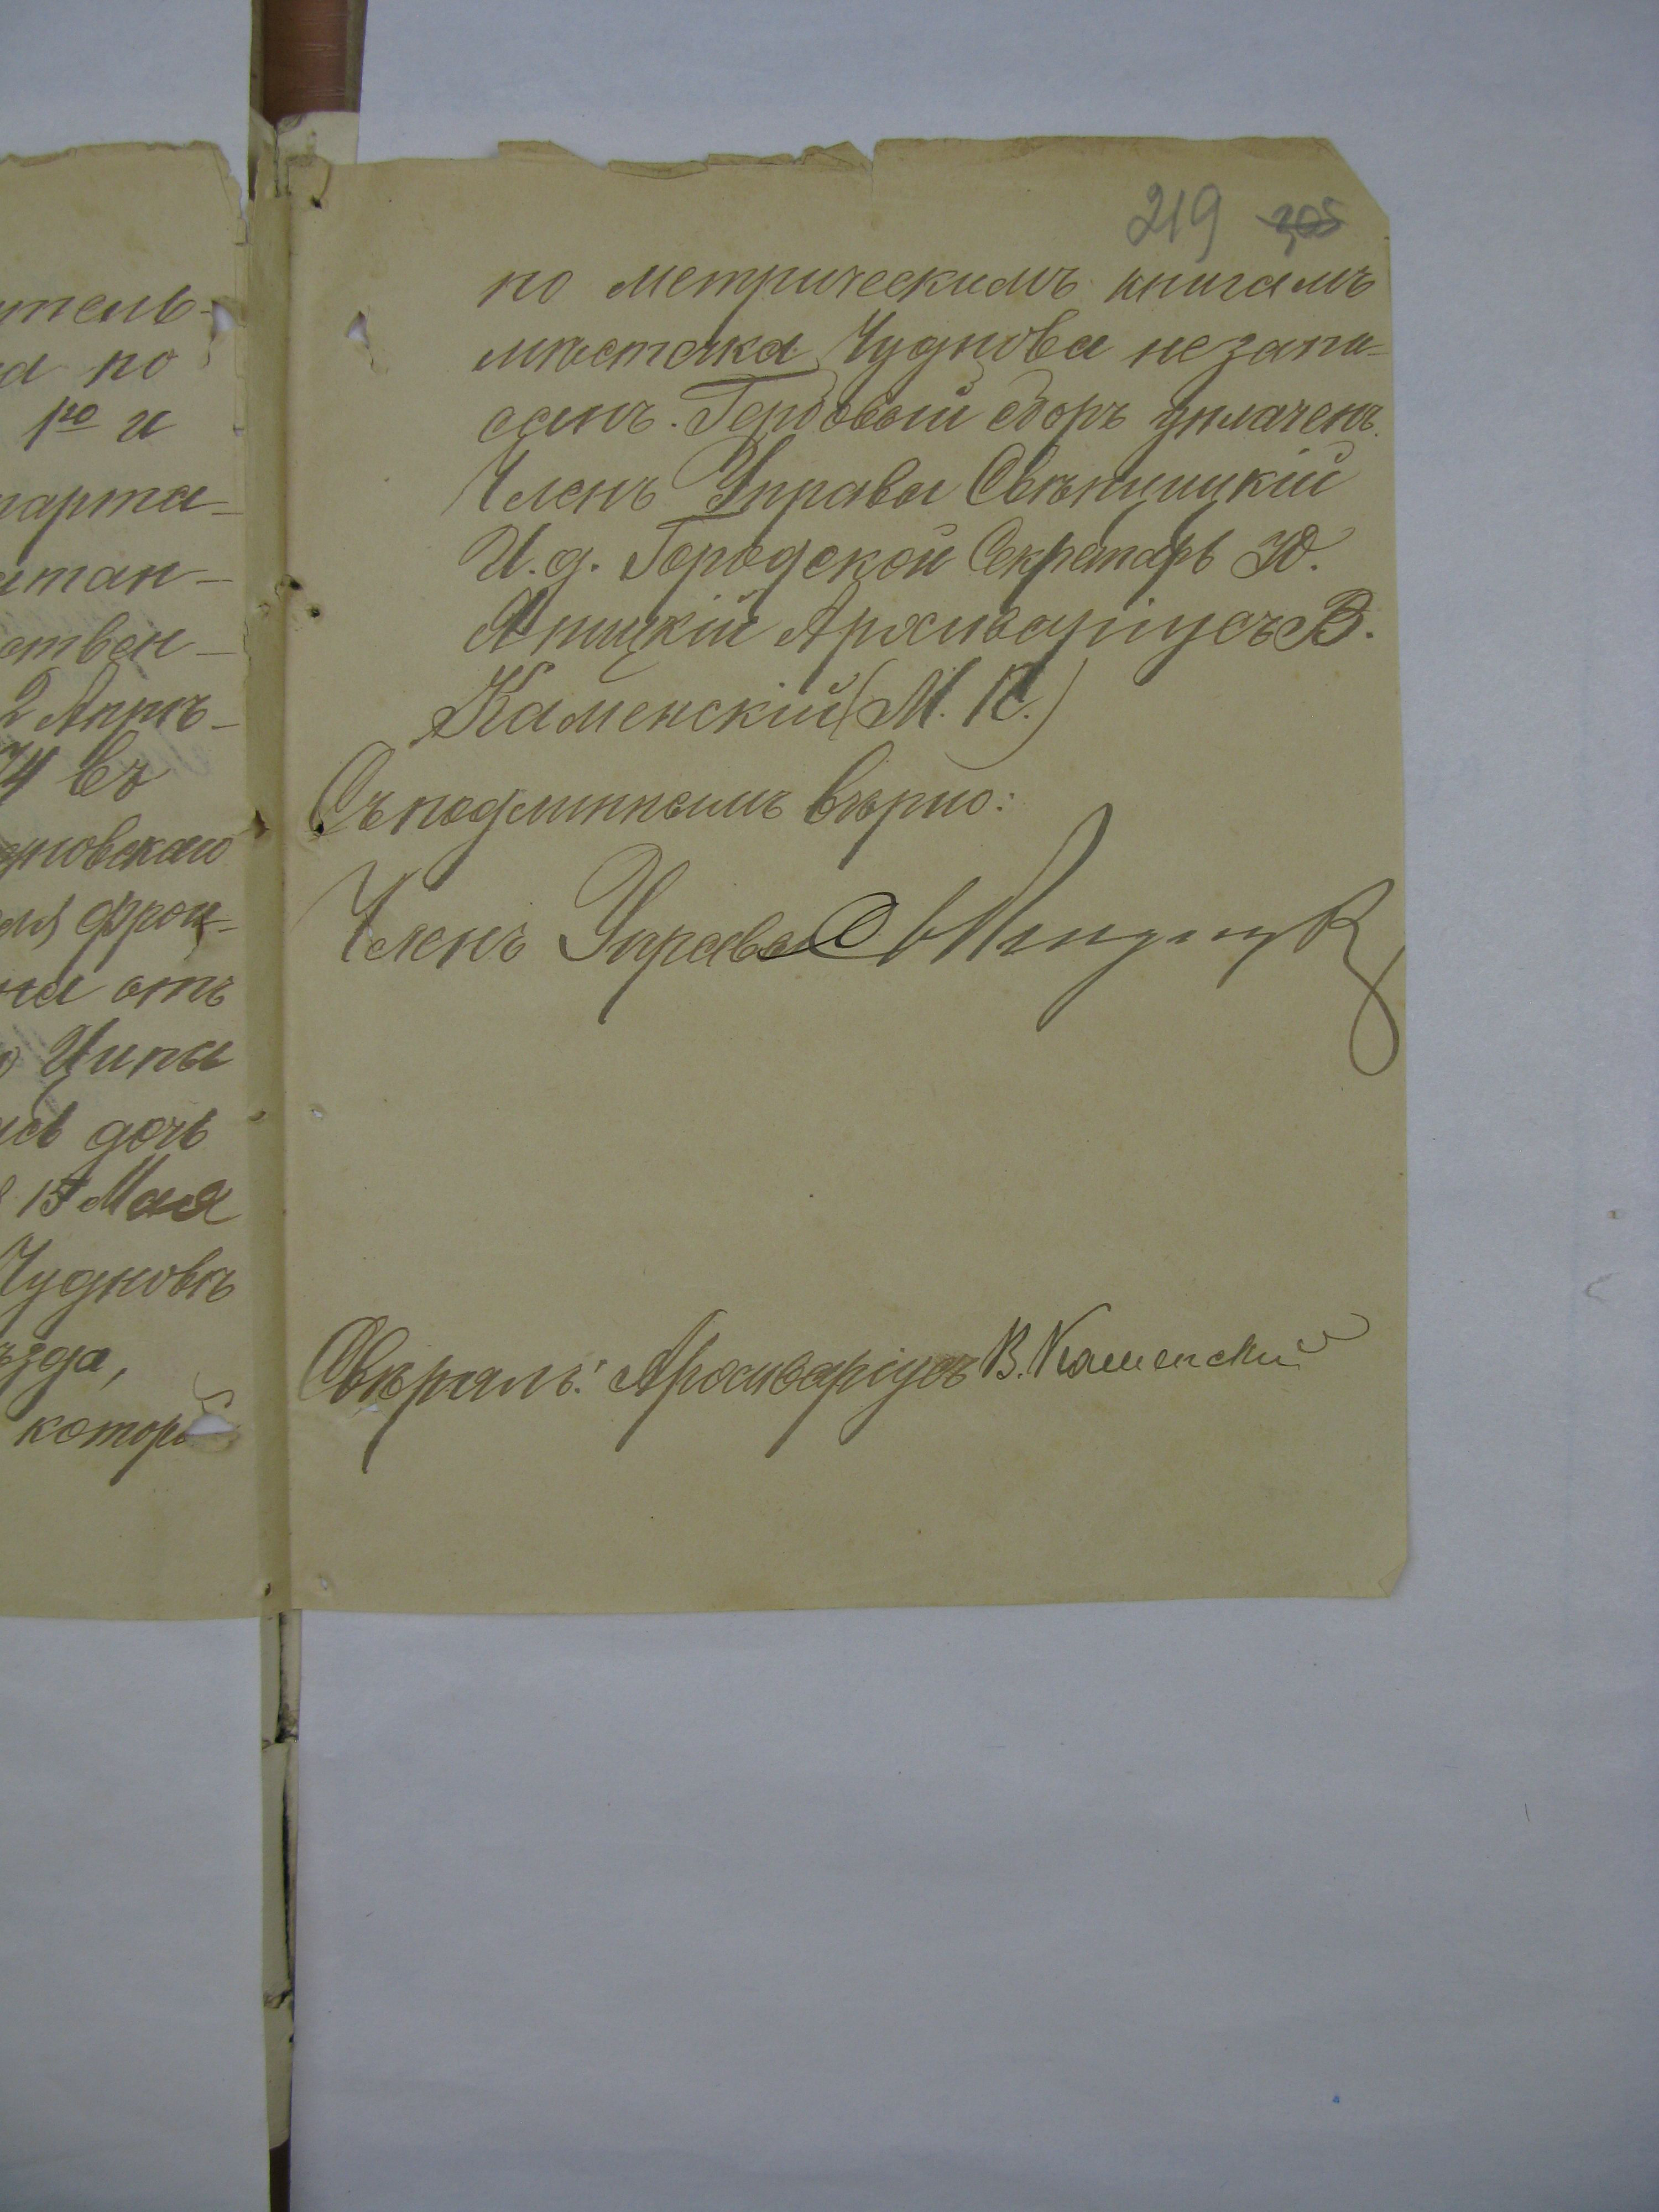 итель-
а по
1го и
парта-
итан-
ствен-
2 Апрѣ-
74 въ
дновскаго
фрои-
отъ
Ципы
дочь
15 Мая
Чудновѣ
ѣзда,
которы
219 305
по метрическимъ книгамъ
мѣстечка Чуднова не запи-
санъ. Гербовый сборъ уплаченъ.
Членъ Управы Свѣнцицкій
И. д. Городской Секретарь Ю.
Яницкій Архиваріусъ В.
Каменскій (М. П.)
Съ подлиннымъ вѣрно:
Членъ Управы
Свѣрялъ: Архиваріусъ В. Каменскій